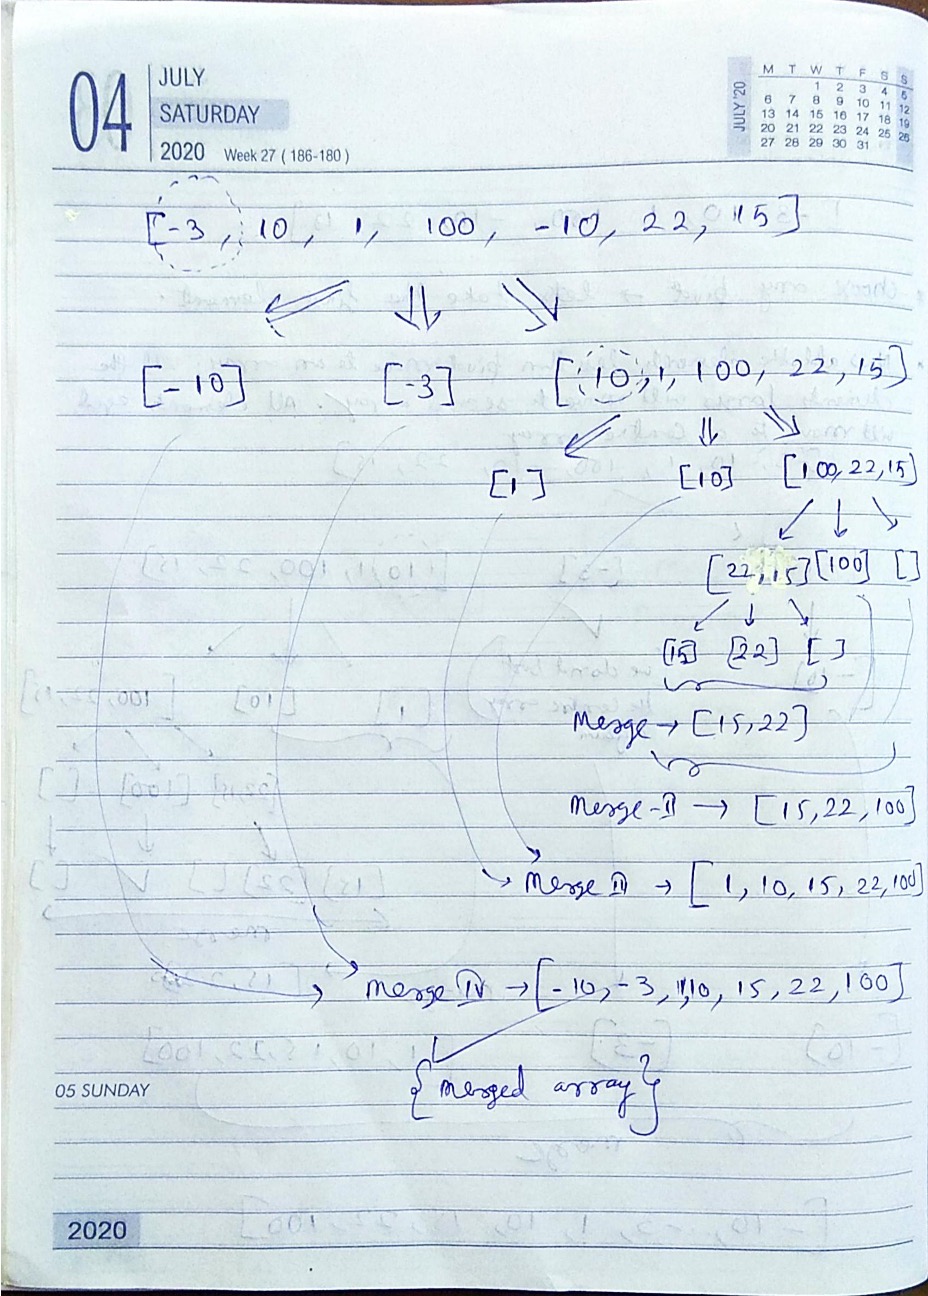 04
JULY
SATURDAY
2020 Week 27 ( 186-180 )
JULY '20
M T W T F S S
1 2 3 4 5
6 7 8 9 10 11 12
13 14 15 16 17 18 19
20 21 22 23 24 25 26
27 28 29 30 31
[-3, 10, 1, 100, -10, 22, 15]
[-10] [-3] [10, 1, 100, 22, 15]
[1] [10] [100, 22, 15]
[22, 15] [100] [ ]
[15] [22] [ ]
Merge → [15, 22]
Merge-II → [15, 22, 100]
Merge III → [1, 10, 15, 22, 100]
Merge IV → [-10, -3, 1, 10, 15, 22, 100]
{merged array}
05 SUNDAY
2020